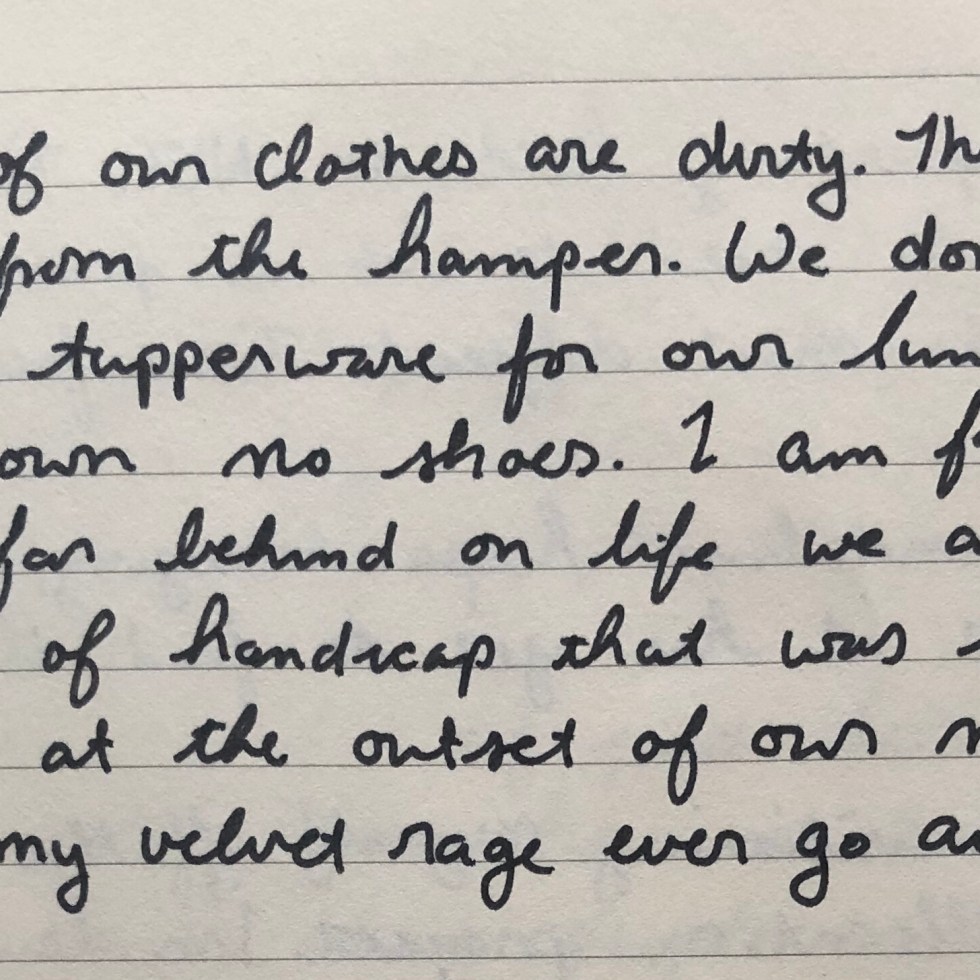 of our clothes are dirty. Th
from the hamper. We don
tupperware for our lun
own no shoes. I am f
far behind on life we a
of handicap that was
at the outset of our
my velvet rage ever go a